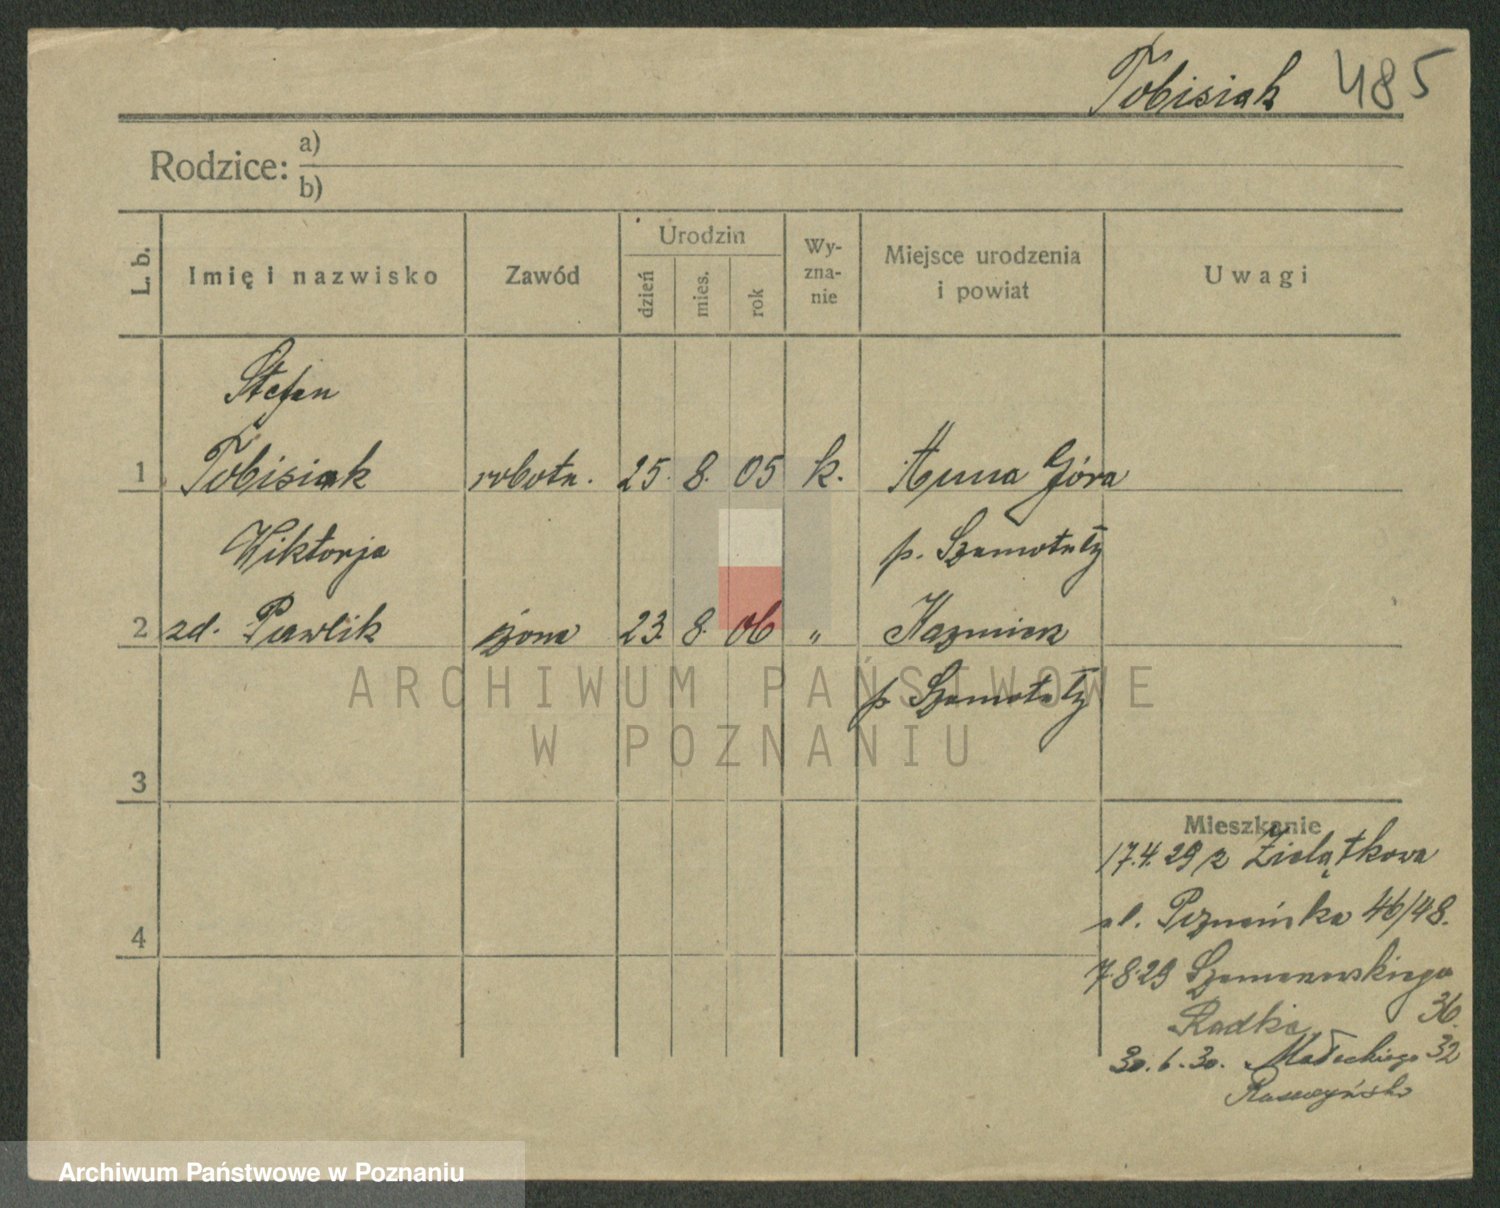 Tobisiak 485
Rodzice: a)
b)
L. b. Imię i nazwisko Zawód Urodzin dzień mies. rok Wy-zna-nie Miejsce urodzenia i powiat Uwagi
Stefan
1 Tobisiak robotn. 25. 8. 05 k. Huna Góra
Wiktorja p. Szamotuły
2 zd. Pawlik żona 23. 8. 06 " Kazmierz
p. Szamotuły
ARCHIWUM PAŃSTWOWE
W POZNANIU
3
Mieszkanie
17.4.29 z Zielątkowa
ul. Poznańska 46/48.
4
7.8.29 Szamarzewskiego
36.
Radka
30.6.30. Małeckiego 32
Archiwum Państwowe w Poznaniu